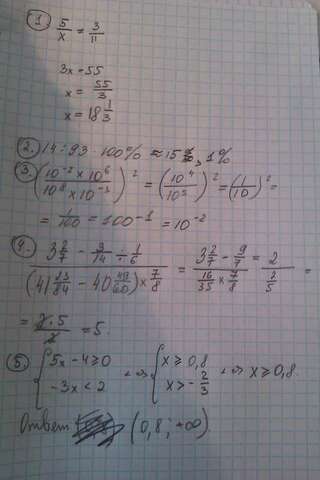 1. 5/x = 3/11
3x = 55
x = 55/3
x = 18 1/3
2. 14 ÷ 93 · 100% ≈ 15, 1%
3. (10⁻² × 10⁶ / 10⁸ × 10⁻³)² = (10⁴ / 10⁵)² = (1/10)² =
= 1/100 = 100⁻¹ = 10⁻²
4. (3 2/7 − 3/14 ÷ 1/6) / ((41 23/84 − 40 49/60) × 7/8) = (3 2/7 − 9/7) / (16/35 × 7/8) = 2 / (2/5) =
= 2·5/2 = 5.
5. { 5x − 4 ≥ 0 ⇔ { x ≥ 0,8 ⇔ x ≥ 0,8.
−3x < 2 x > − 2/3
Ответ (0,8; +∞)